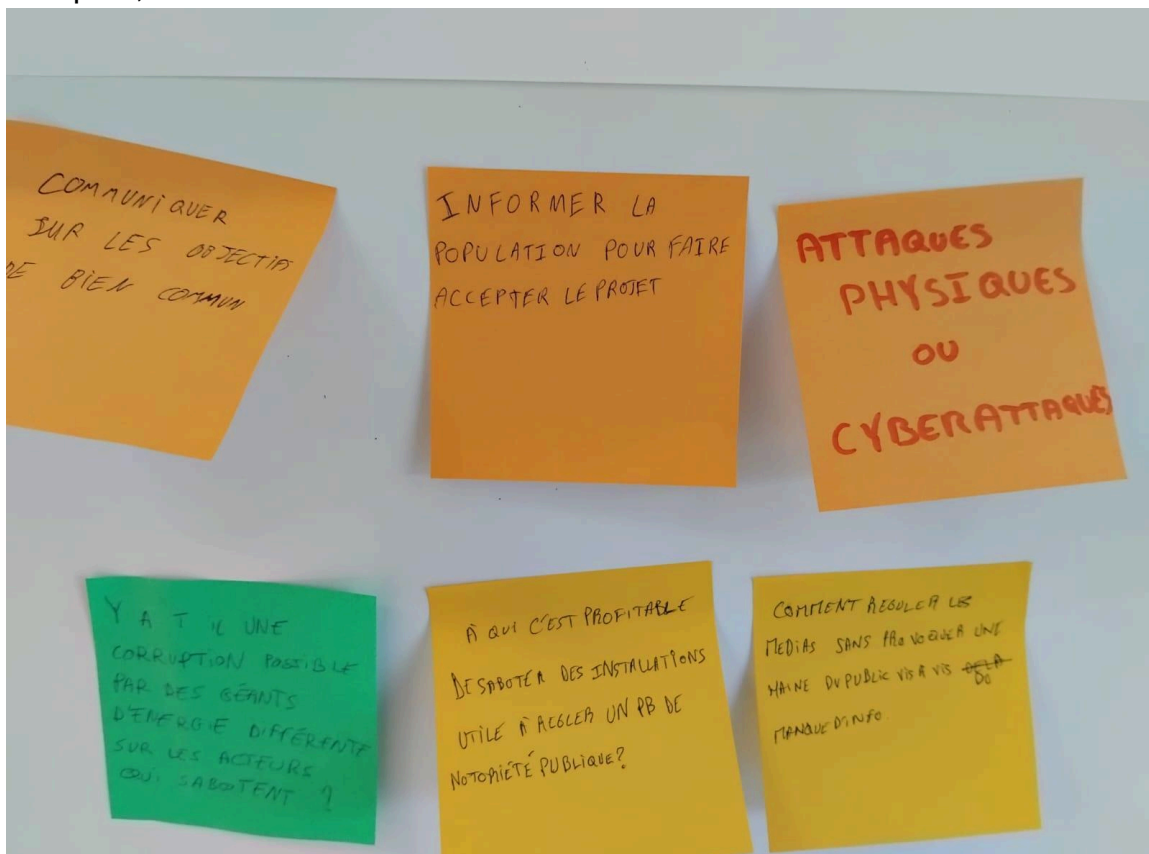 COMMUNIQUER
SUR LES OBJECTIFS
DE BIEN COMMUN
INFORMER LA
POPULATION POUR FAIRE
ACCEPTER LE PROJET
ATTAQUES
PHYSIQUES
OU
CYBERATTAQUES
Y A T IL UNE
CORRUPTION POSSIBLE
PAR DES GÉANTS
D'ENERGIE DIFFÉRENTE
SUR LES ACTEURS
QUI SABOTENT ?
À QUI C'EST PROFITABLE
DE SABOTER DES INSTALLATIONS
UTILE À REGLER UN PB DE
NOTORIÉTÉ PUBLIQUE?
COMMENT REGULER LES
MEDIAS SANS PROVOQUER UNE
HAINE DU PUBLIC VIS A VIS DE LA
DU
MANQUE D'INFO